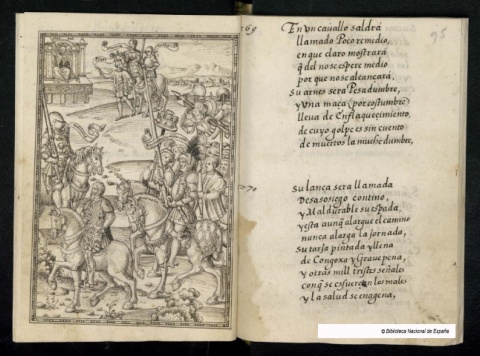 269
En un cauallo saldrá
llamado Poco remedio,
en que claro mostrará
q̃ del no se espere medio
por que no se alcançará.
Su arnes será Pesadumbre,
y una maça (por costumbre)
lleua de Enflaquecimiento,
de cuyo golpe es sin cuento
de muertos la muchedumbre,
95
270
Su lança sera llamada
Desasosiego contino,
y Mal durable su espada,
y esta aunq̃ alargue el camino
nunca alarga la jornada,
Su tarja pintada y llena
de Congoxa y Graue pena,
y otras mill tristes señales
conq̃ se esfuerçan los males
y la salud se enagena,
© Biblioteca Nacional de España